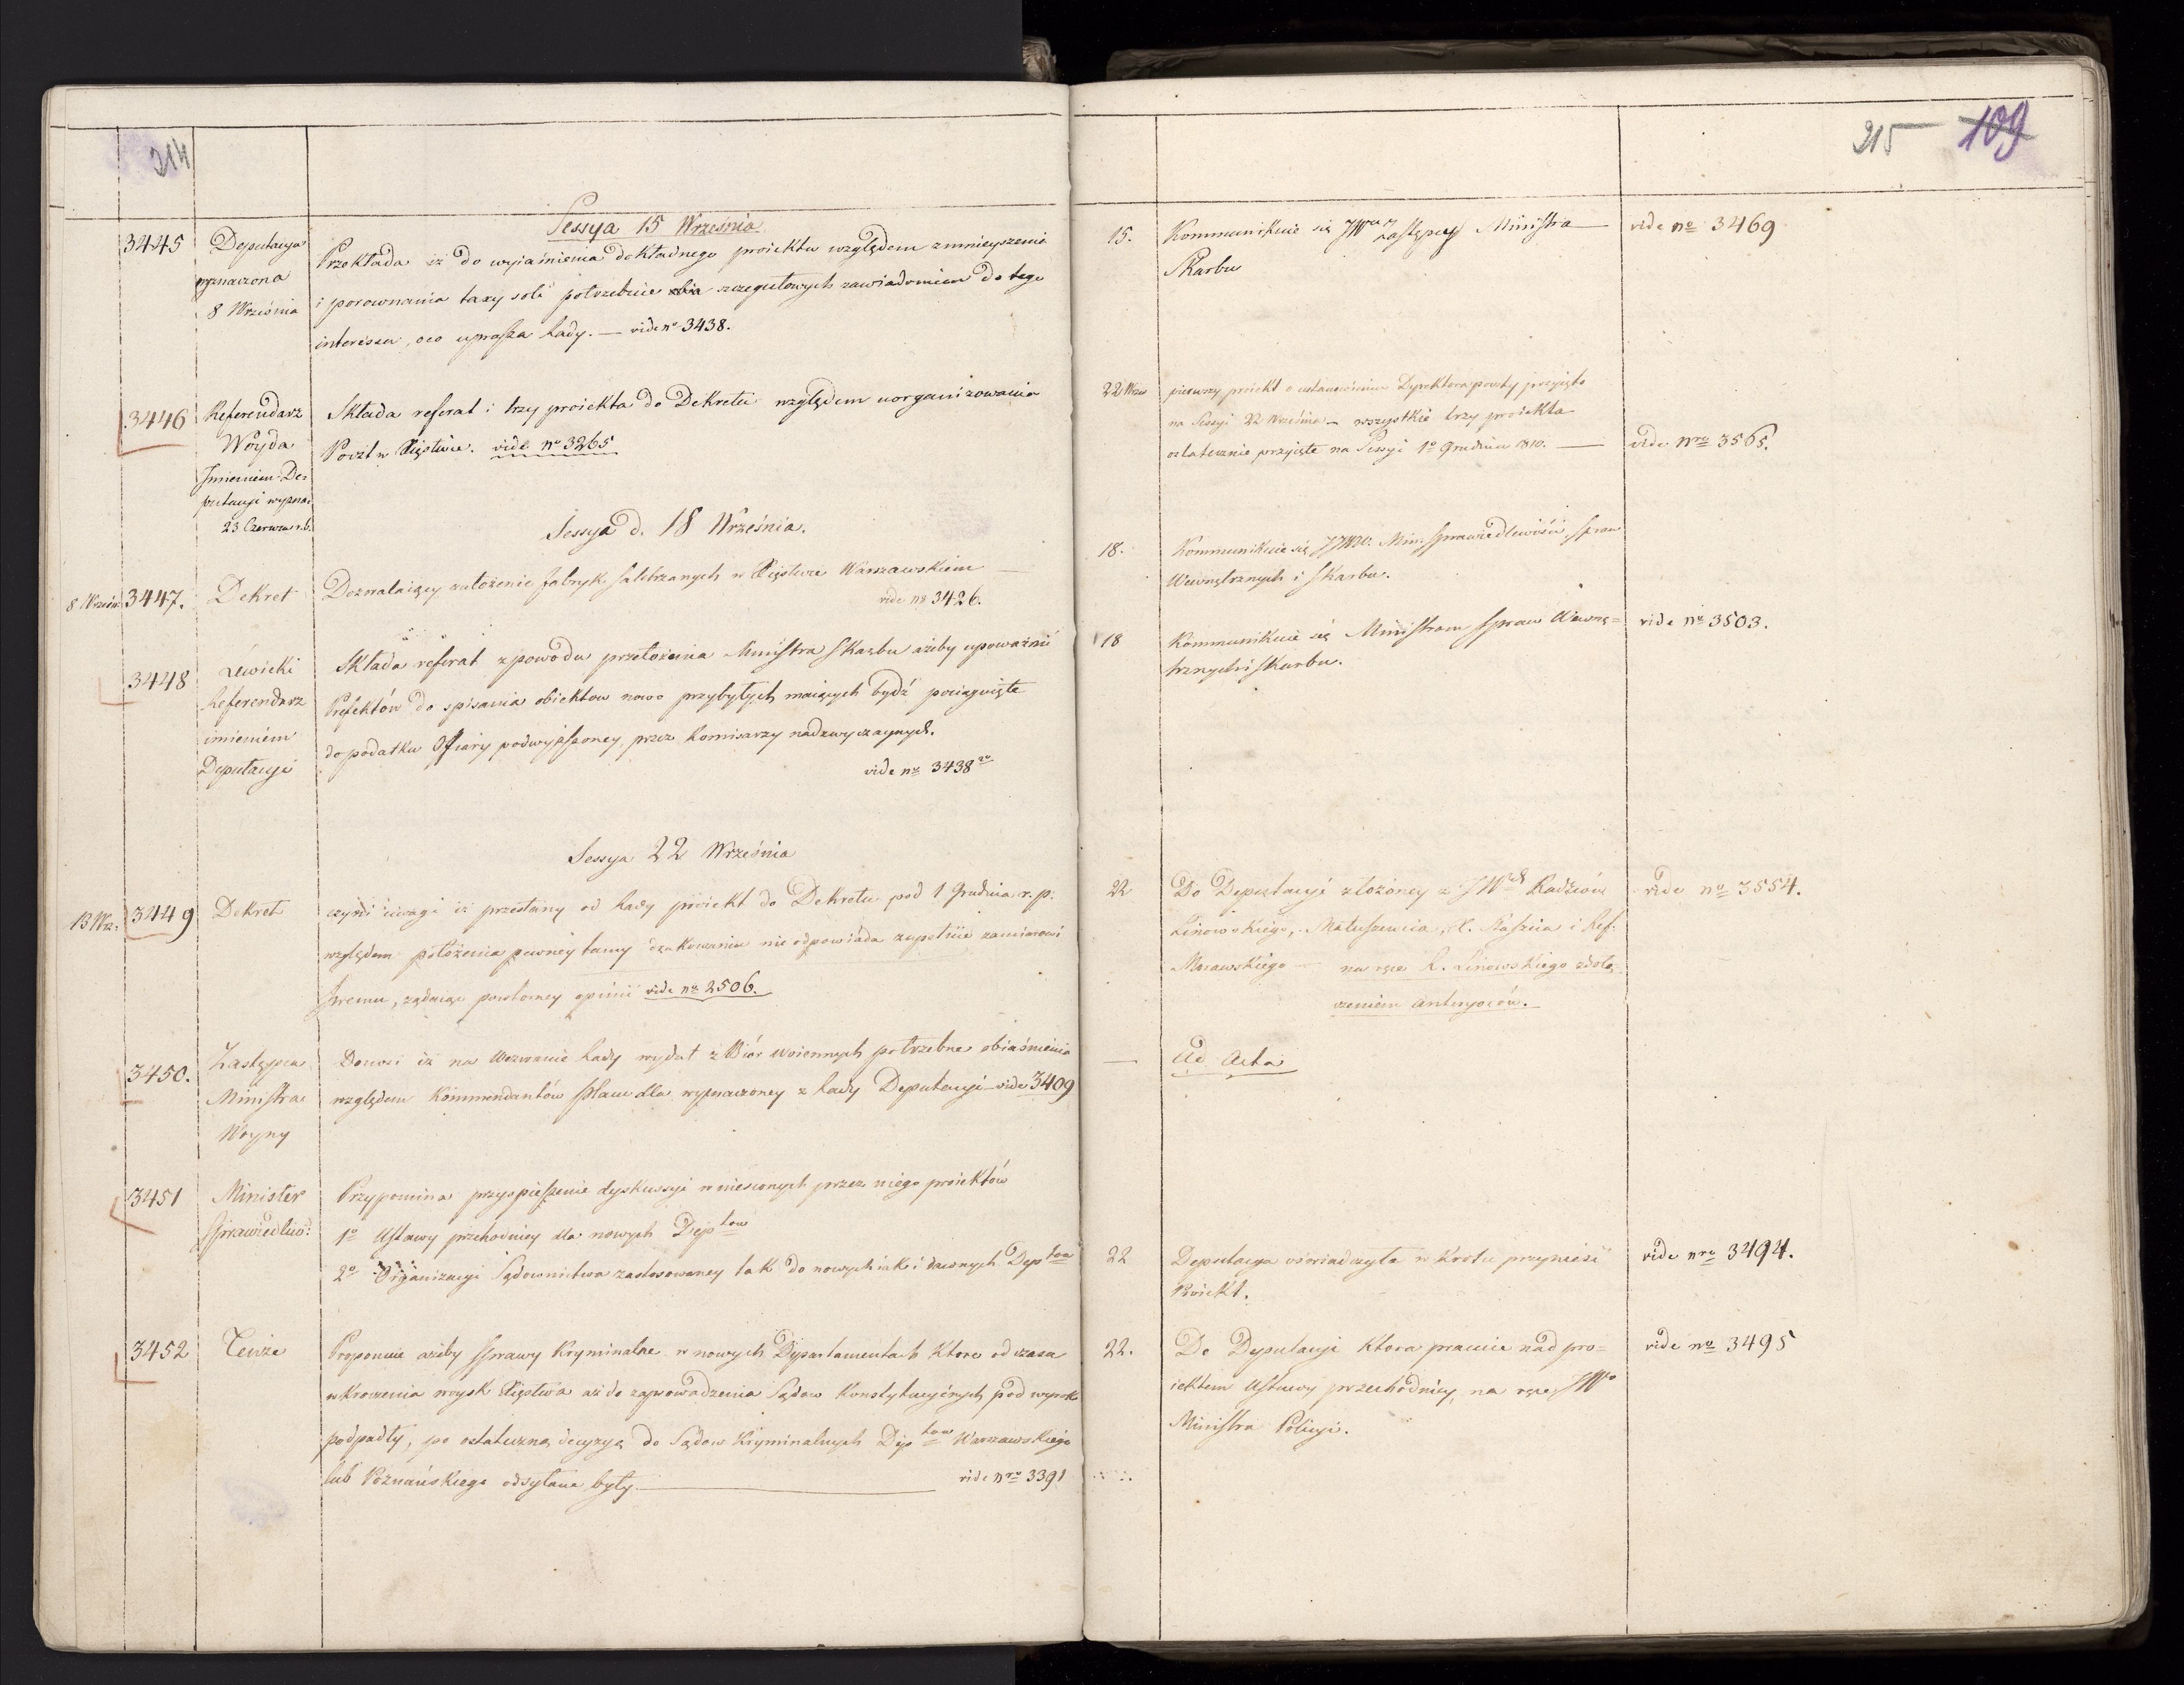 214
Sessya 15 Września
3445 Deputacya wyznaczona 8 Września
Przekłada iż do wyiaśnienia dokładnego proiektu względem zmnieyszenia
i porownania taxy soli potrzebuie szczegułowych zawiadomień do tego
interessu, oco uprasza Rady. — vide no 3438.
3446 Referendarz Woyda Imieniem Deputacyi wyzna: 23 Czerwca r.b.
Składa referat i trzy proiekta do Dekretu względem uorganizowania
Poczt w Xięstwie. vide no 3265
Sessya d. 18 Września.
8 Wrześ: 3447. Dekret
Dozwalaiący założenie fabryk saletrzanych w Xięstwie Warszawskiem —
vide no 3426.
3448 Lewicki Referendarz imieniem Deputacyi
Składa referat z powodu przełożenia Ministra Skarbu ażeby upoważnić
Prefektów do spisania obiektow nowo przybyłych maiących bydź pociągnięte
do podatku Ofiary podwyższoney przez komisarzy nadzwyczaynych.
vide no 3438
Sessya 22 Września
13 Wrz: 3449 Dekret
czyni uwagi iż przesłany od Rady proiekt do Dekretu pod 1 Grudnia r. p.
względem położenia pewney tamy dzakowaniu nie odpowiada zupełnie zamiarowi
swemu, żądaiąc powtorney opinii vide no 2506.
3450. Zastępca Ministra Woyny
Donosi iż na Wezwanie Rady wydał z Biór woiennych potrzebne obiaśnienia
względem Kommendantów placu dla wyznaczoney z Rady Deputacyi — vide 3409
3451 Minister Sprawiedliw:
Przypomina przyspieszenie dyskussyi wniesionych przez niego proiektów
1o Ustawy przechodniey dla nowych Deptow
2o Organizacyi Sądownictwa zastosowaney tak do nowych iak i dawnych Deptow
3452 Tenże
Proponuie ażeby sprawy Kryminalne w nowych Departamentach które od czasu
wkroczenia woysk Xięstwa aż do zaprowadzenia Sądow Konstytucyinych pod wyrok
podpadły, po ostateczną decyzyą do Sądow Kryminalnych Deptow Warszawskiego
lub Poznańskiego odsyłane były. — vide nro 3391
215 109
15. Kommunikuie się JWu Zastępcy Ministra —
Skarbu
vide no 3469
22 Wrześ pierwszy proiekt o ustanowieniu Dyrektora poczty przyięto
na Sessyi 22 Września — wszystkie trzy proiekta
ostatecznie przyięte na Sessyi 1o Grudnia 1810. —
vide nro 3565.
18. Kommunikuie się JJWW. Min: Sprawiedliwości, Spraw
Wewnętrznych i Skarbu.
18 Kommunikuie się Ministrom Spraw Wewnę=
trznych i Skarbu.
vide no 3503.
22 Do Deputacyi złożoney z JWch Radzców
Linowskiego, Matuszewica, R. Staszica i Ref.
Morawskiego — na ręce R. Linowskiego z dołą=
czeniem anteryorów.
vide no 3554.
— Ad Acta
22 Deputacya oświadczyła w krotce przynieść
Proiekt.
vide nro 3494.
22. Do Deputacyi ktora pracuie nad pro=
iektem Ustawy przechodniey, na ręce JWo
Ministra Policyi.
vide no 3495